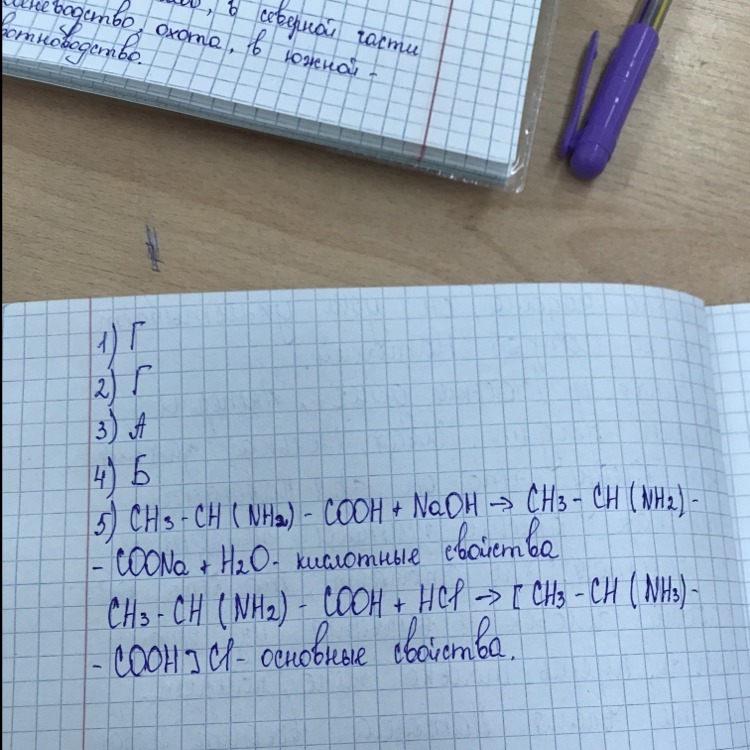 в северной части
охота, в южной -
1) Г
2) Г
3) А
4) Б
5) CH3-CH(NH2)-COOH + NaOH → CH3-CH(NH2)-
-COONa + H2O- кислотные свойства
CH3-CH(NH2)-COOH + HCl → [CH3-CH(NH3)-
-COOH]Cl- основные свойства.